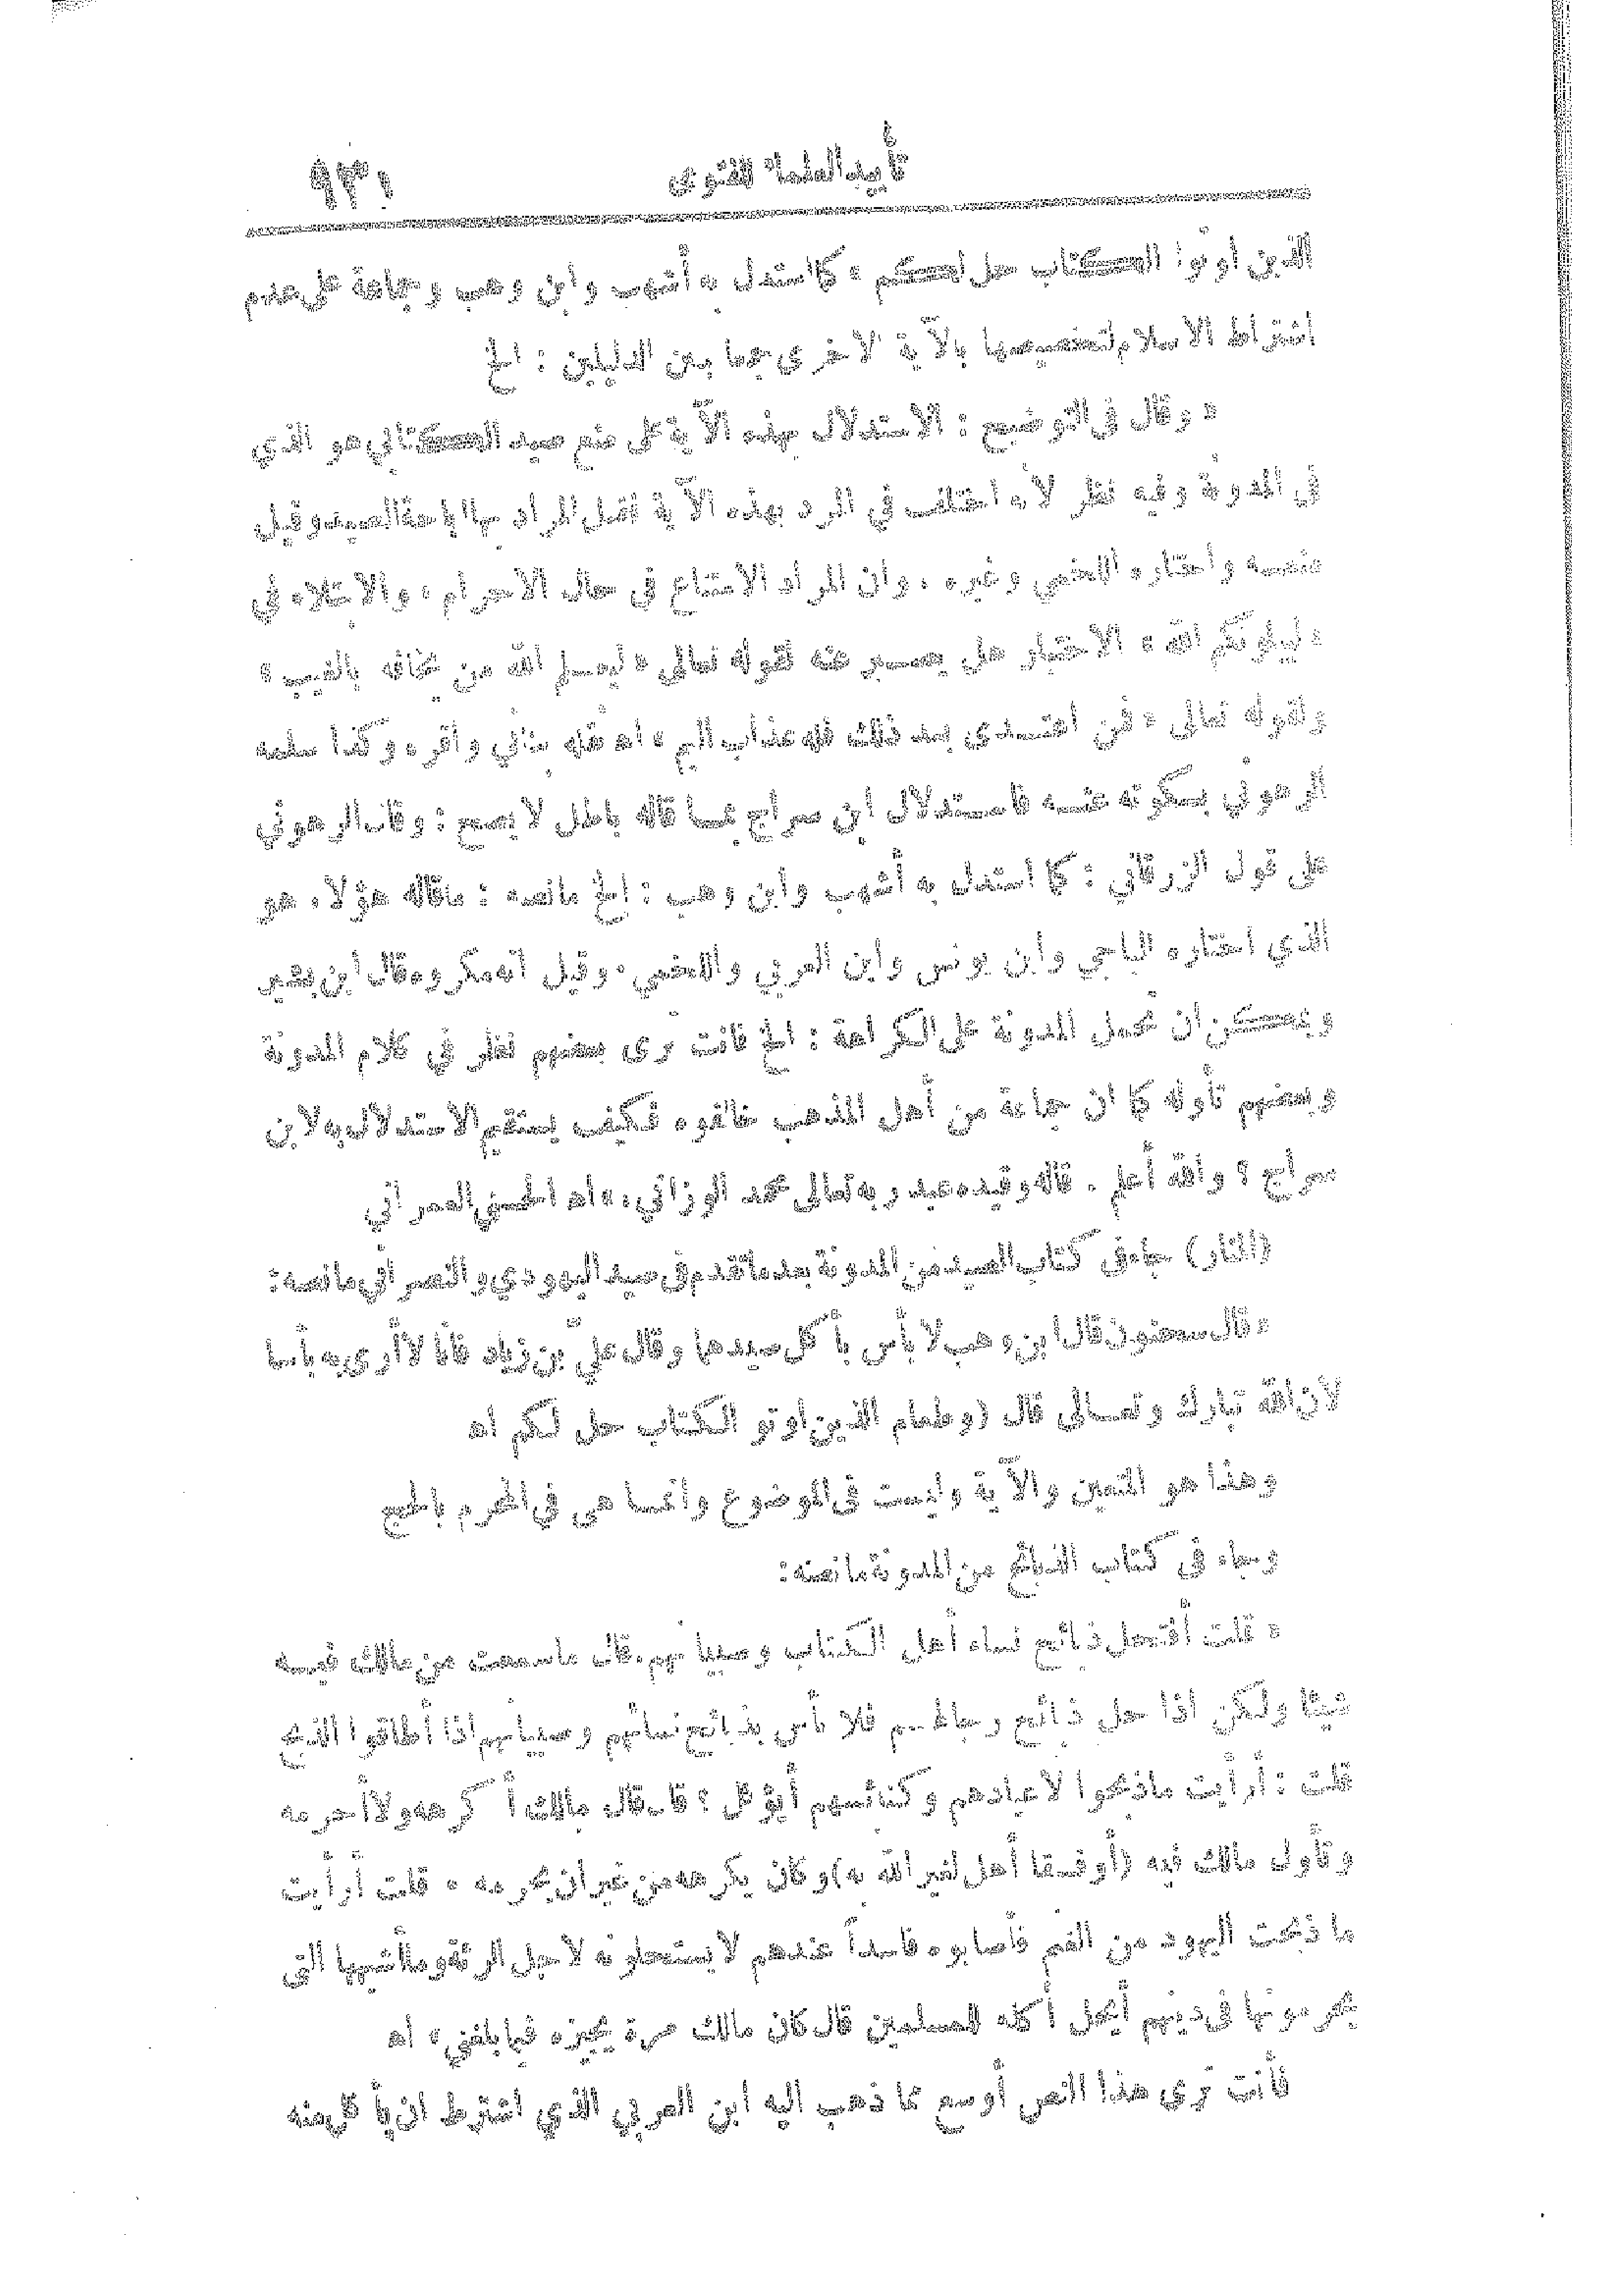 تأييد العلماء للفتوى ٩٣١
الذين أوتوا الكتاب حل لكم » كما استدل به أشهب وابن وهب وجماعة على عدم
اشتراط الاسلام لتخصيصها بالآية الاخرى جمعا بين الدليلين : الخ
« وقال في التوضيح : الاستدلال بهذه الآية على منع صيد الكتابي هو الذي
في المدونة وفيه نظر لانه اختلف في المرد بهذه الآية فقيل المراد بها اباحة الصيد وقيل
منعه واختاره اللخمي وغيره ، وان المراد الامتناع في حال الاحرام ، والابتلاء في
« ليبلونكم الله » الاختبار هل يصبر عنه لقوله تعالى « ليعلم الله من يخافه بالغيب »
ولقوله تعالى « فمن اعتدى بعد ذلك فله عذاب اليم » اه نقله بناني وأقره وكذا سلمه
الرهوني بسكوته عنه فاستدلال ابن سراج بما قاله باطل لا يصح : وقال الرهوني
على قول الزرقاني : كما استدل به أشهب وابن وهب : إلخ مانصه : ماقاله هؤلاء هو
الذي اختاره الباجي وابن يونس وابن العربي واللخمي ، وقيل انه مكروه قال ابن بشير
ويمكن ان تحمل المدونة على الكراهة : الخ فانت ترى بعضهم نظر في كلام المدونة
وبعضهم تأوله كما ان جماعة من أهل المذهب خالفوه فكيف يستقيم الاستدلال به لابن
سراج ؟ والله أعلم . قاله وقيده عبد ربه تعالى محمد الوزاني ، » اه الحسني العمراني
(المنار) جاء في كتاب الصيد من المدونة بعد ماتقدم في صيد اليهودي والنصراني مانصه :
« قال سحنون قال ابن وهب لا بأس بأكل صيدهما وقال عليّ بن زياد فأنا لا أرى به بأسا
لأن الله تبارك وتعالى قال (وطعام الذين اوتو الكتاب حل لكم اه
وهذا هو المتعين والآية وليست في الموضوع وانما هي في المحرم بالحج
وجاء في كتاب الذبائح من المدونة مانصه :
« قلت أفتحل ذبائح نساء أهل الكتاب وصبيانهم . قال ماسمعت من مالك فيه
شيئا ولكن اذا حل ذبائح رجالهم فلا بأس بذبائح نسائهم وصبيانهم اذا أطاقوا الذبح
قلت : أرأيت ماذبحوا لاعيادهم وكنائسهم أيؤكل ؟ قال قال مالك أكرهه ولا أحرمه
وتأول مالك فيه (أو فسقا أهل لغير الله به) وكان يكرهه من غير ان يحرمه . قلت أرأيت
ما ذبحت اليهود من الغنم فأصابوه فاسداً عندهم لا يستحلونه لاجل الرئة وما أشبهها التي
يحرمونها في دينهم أيحل أكله للمسلمين قال كان مالك مرة يجيزه فيما بلغني » اه
فأنت ترى هذا النص أوسع مما ذهب اليه ابن العربي الذي اشترط ان يأكل منه